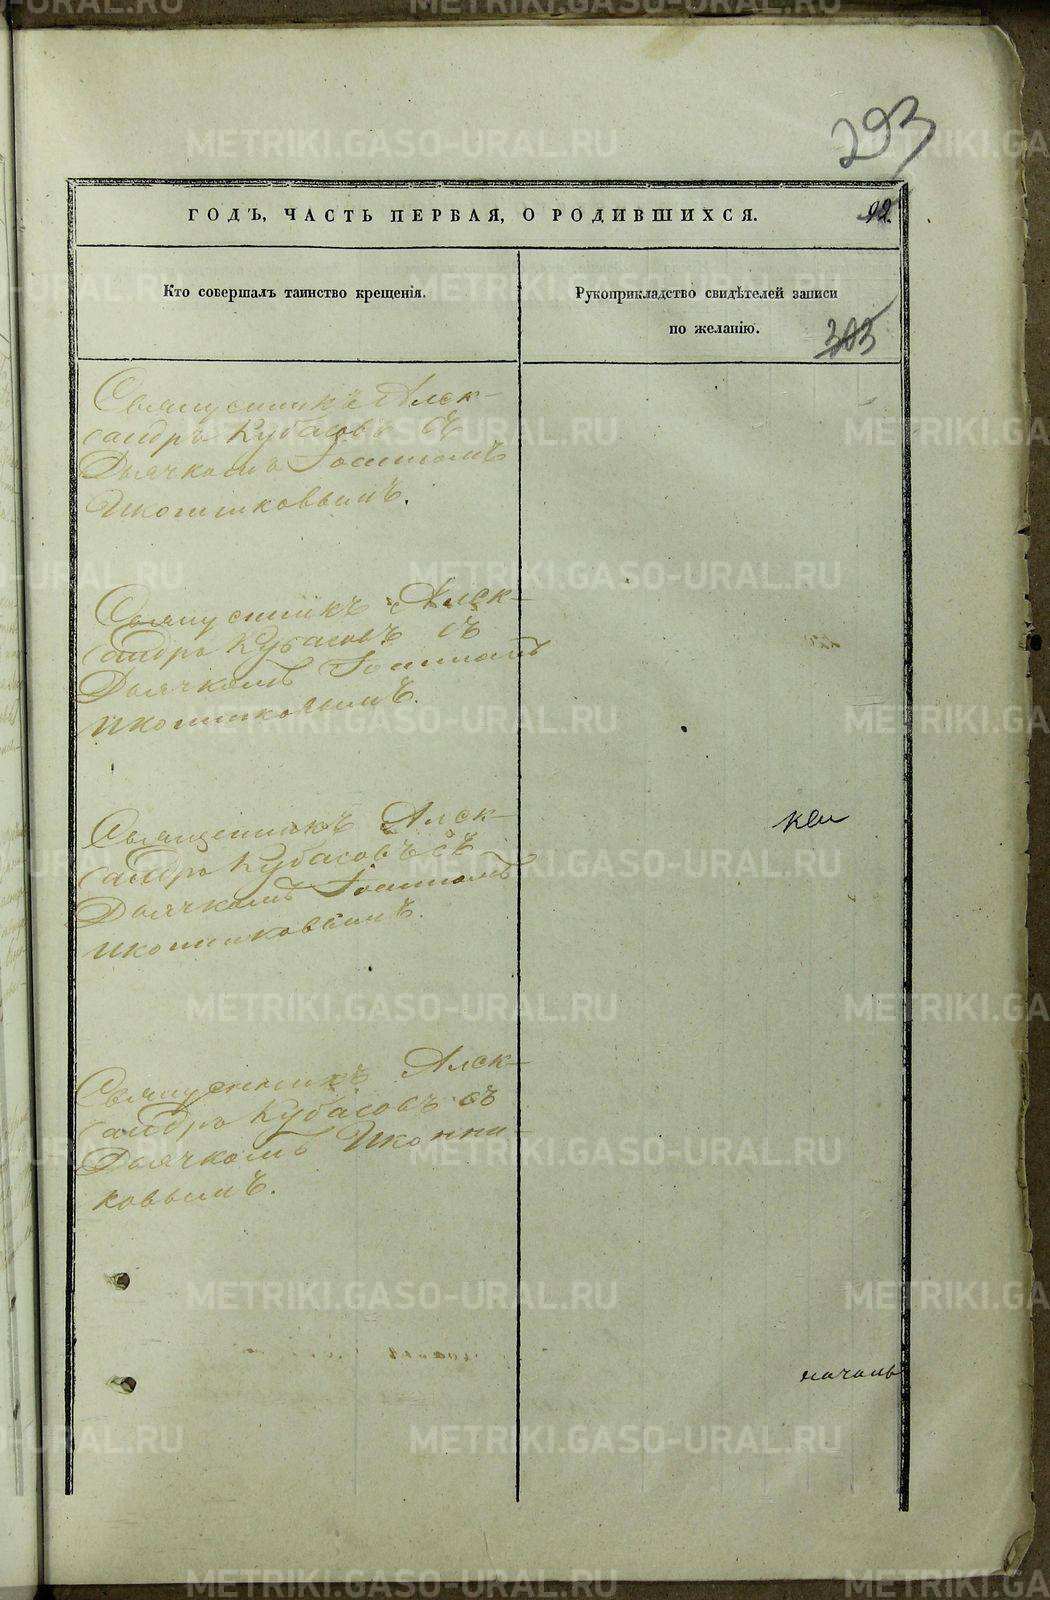 293
ГОДЪ, ЧАСТЬ ПЕРВАЯ, О РОДИВШИХСЯ.
92.
Кто совершалъ таинство крещенія.
Рукоприкладство свидѣтелей записи
по желанію.
303
Священникъ Алек-
сандръ Кубасовъ съ
Дьячкомъ Іоанномъ
Иконниковымъ.
Священникъ Алек-
сандръ Кубасовъ съ
Дьячкомъ Іоанномъ
Иконниковымъ.
Священникъ Алек-
сандръ Кубасовъ съ
Дьячкомъ Іоанномъ
Иконниковымъ.
Священникъ Алек-
сандръ Кубасовъ съ
Дьячкомъ Иконни-
ковымъ.
началь
METRIKI.GASO-URAL.RU